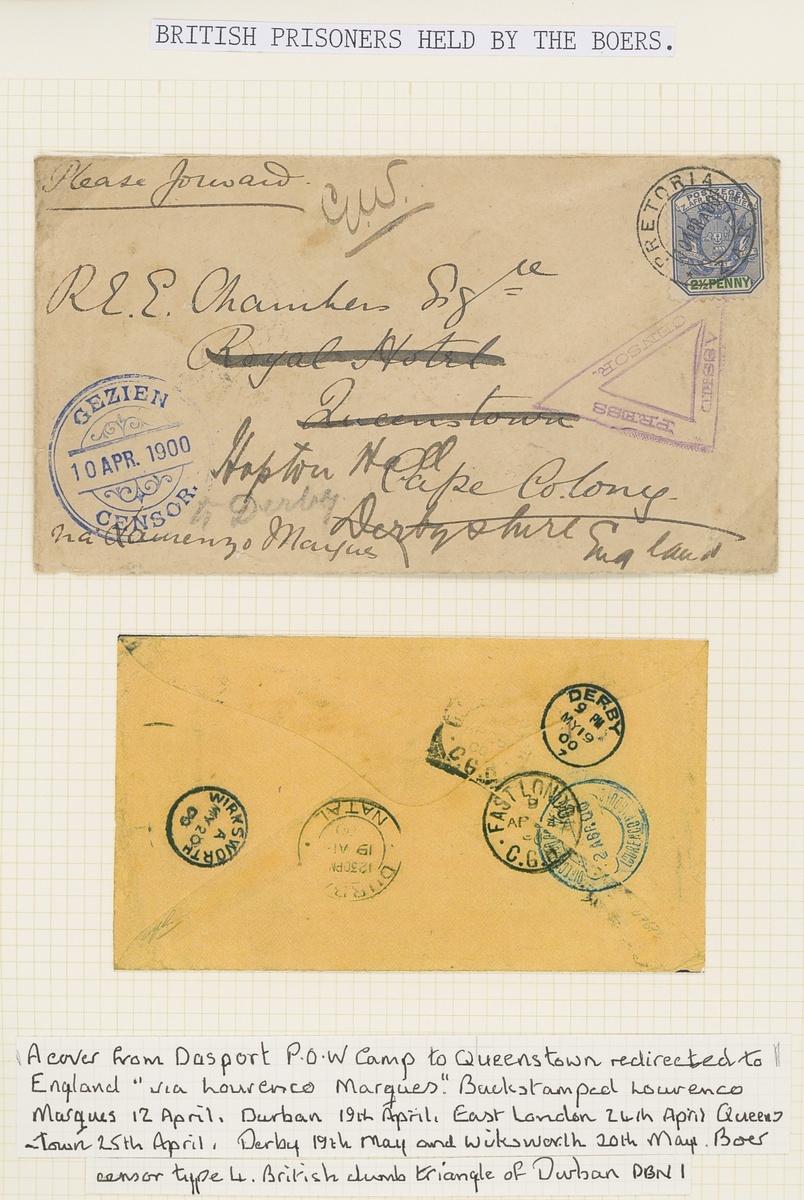 BRITISH PRISONERS HELD BY THE BOERS.
Please forward.
PRETORIA
POSTZEGEL
2½ PENNY
R.E.E. Chambers Esqre
Royal Hotel
Queenstown
PASSED
PRESS
CENSOR.
GEZIEN
10 APR. 1900
CENSOR.
Hopton Hall
Cape Colony
Derby
Derbyshire
England
via Lourenzo Marques
DERBY
9 PM
MY 19
00
WIRKSWORTH
A
MY 20
00
NATAL
19 AP
12 30 PM
DURB
EAST LONDON
AP
C.G.H
LOURENCO
2 ABR 00
A cover from Dasport P.O.W Camp to Queenstown redirected to
England "via Lourenco Marques". Backstamped Lourenco
Marques 12 April. Durban 19th April. East London 24th April Queens
-town 25th April. Derby 19th May and Wirksworth 20th May. Boer
censor type 4. British dumb triangle of Durban DBN 1